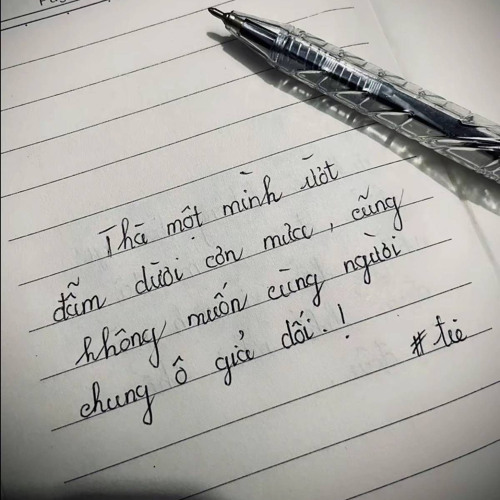 Thà một mình ướt
đẫm dưới cơn mưa, cũng
không muốn cùng người
chung ô giả dối.!